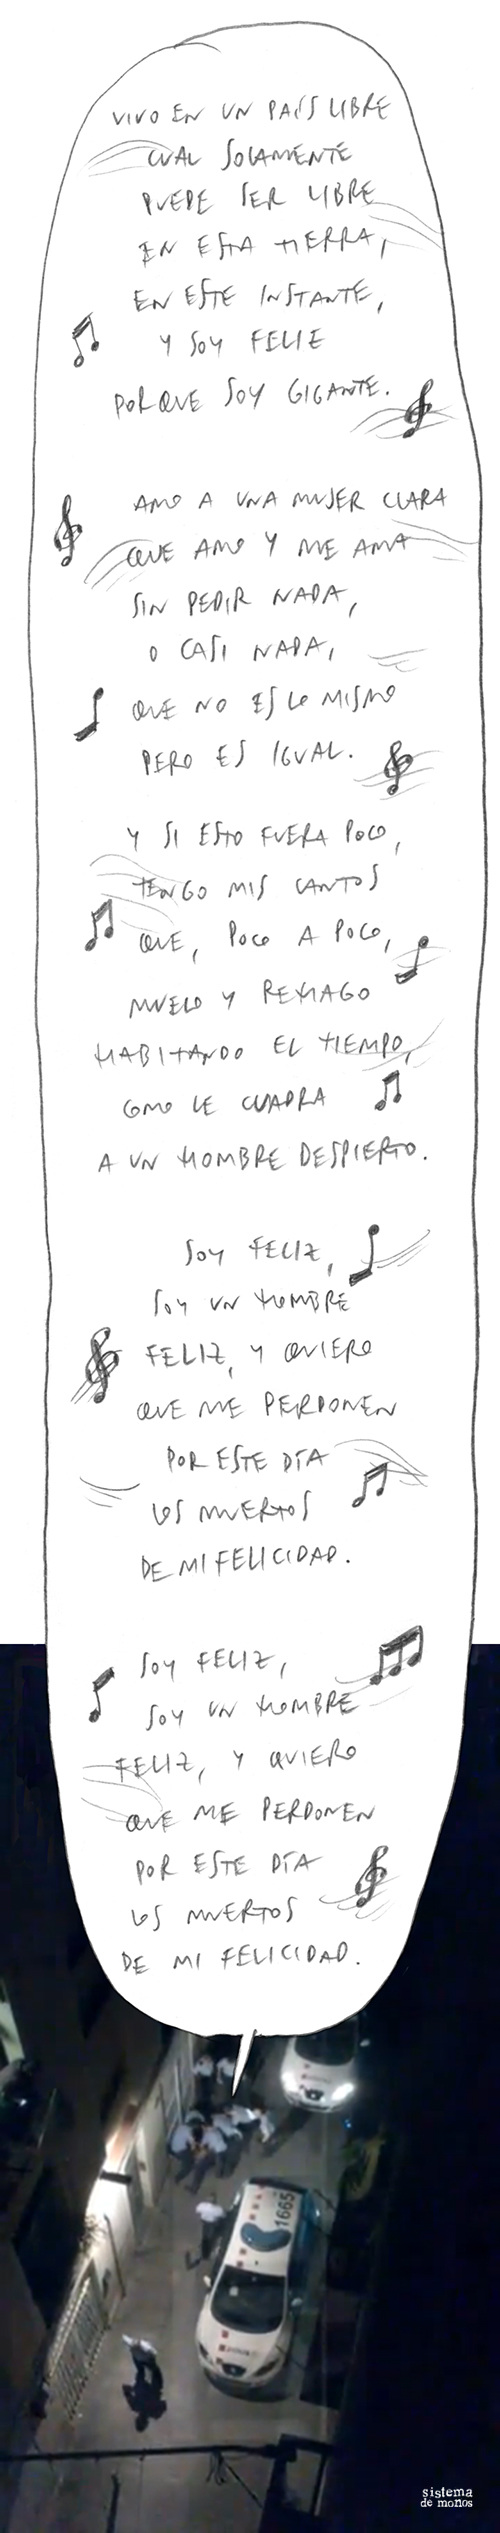 VIVO EN UN PAÍS LIBRE
CUAL SOLAMENTE
PUEDE SER LIBRE
EN ESTA TIERRA,
EN ESTE INSTANTE,
Y SOY FELIZ
PORQUE SOY GIGANTE.
AMO A UNA MUJER CLARA
QUE AMO Y ME AMA
SIN PEDIR NADA,
O CASI NADA,
QUE NO ES LO MISMO
PERO ES IGUAL.
Y SI ESTO FUERA POCO,
TENGO MIS CANTOS
QUE, POCO A POCO,
MUELO Y REHAGO
HABITANDO EL TIEMPO,
COMO LE CUADRA
A UN HOMBRE DESPIERTO.
SOY FELIZ,
SOY UN HOMBRE
FELIZ, Y QUIERO
QUE ME PERDONEN
POR ESTE DÍA
LOS MUERTOS
DE MI FELICIDAD.
SOY FELIZ,
SOY UN HOMBRE
FELIZ, Y QUIERO
QUE ME PERDONEN
POR ESTE DÍA
LOS MUERTOS
DE MI FELICIDAD.
1665
sistema
de moños